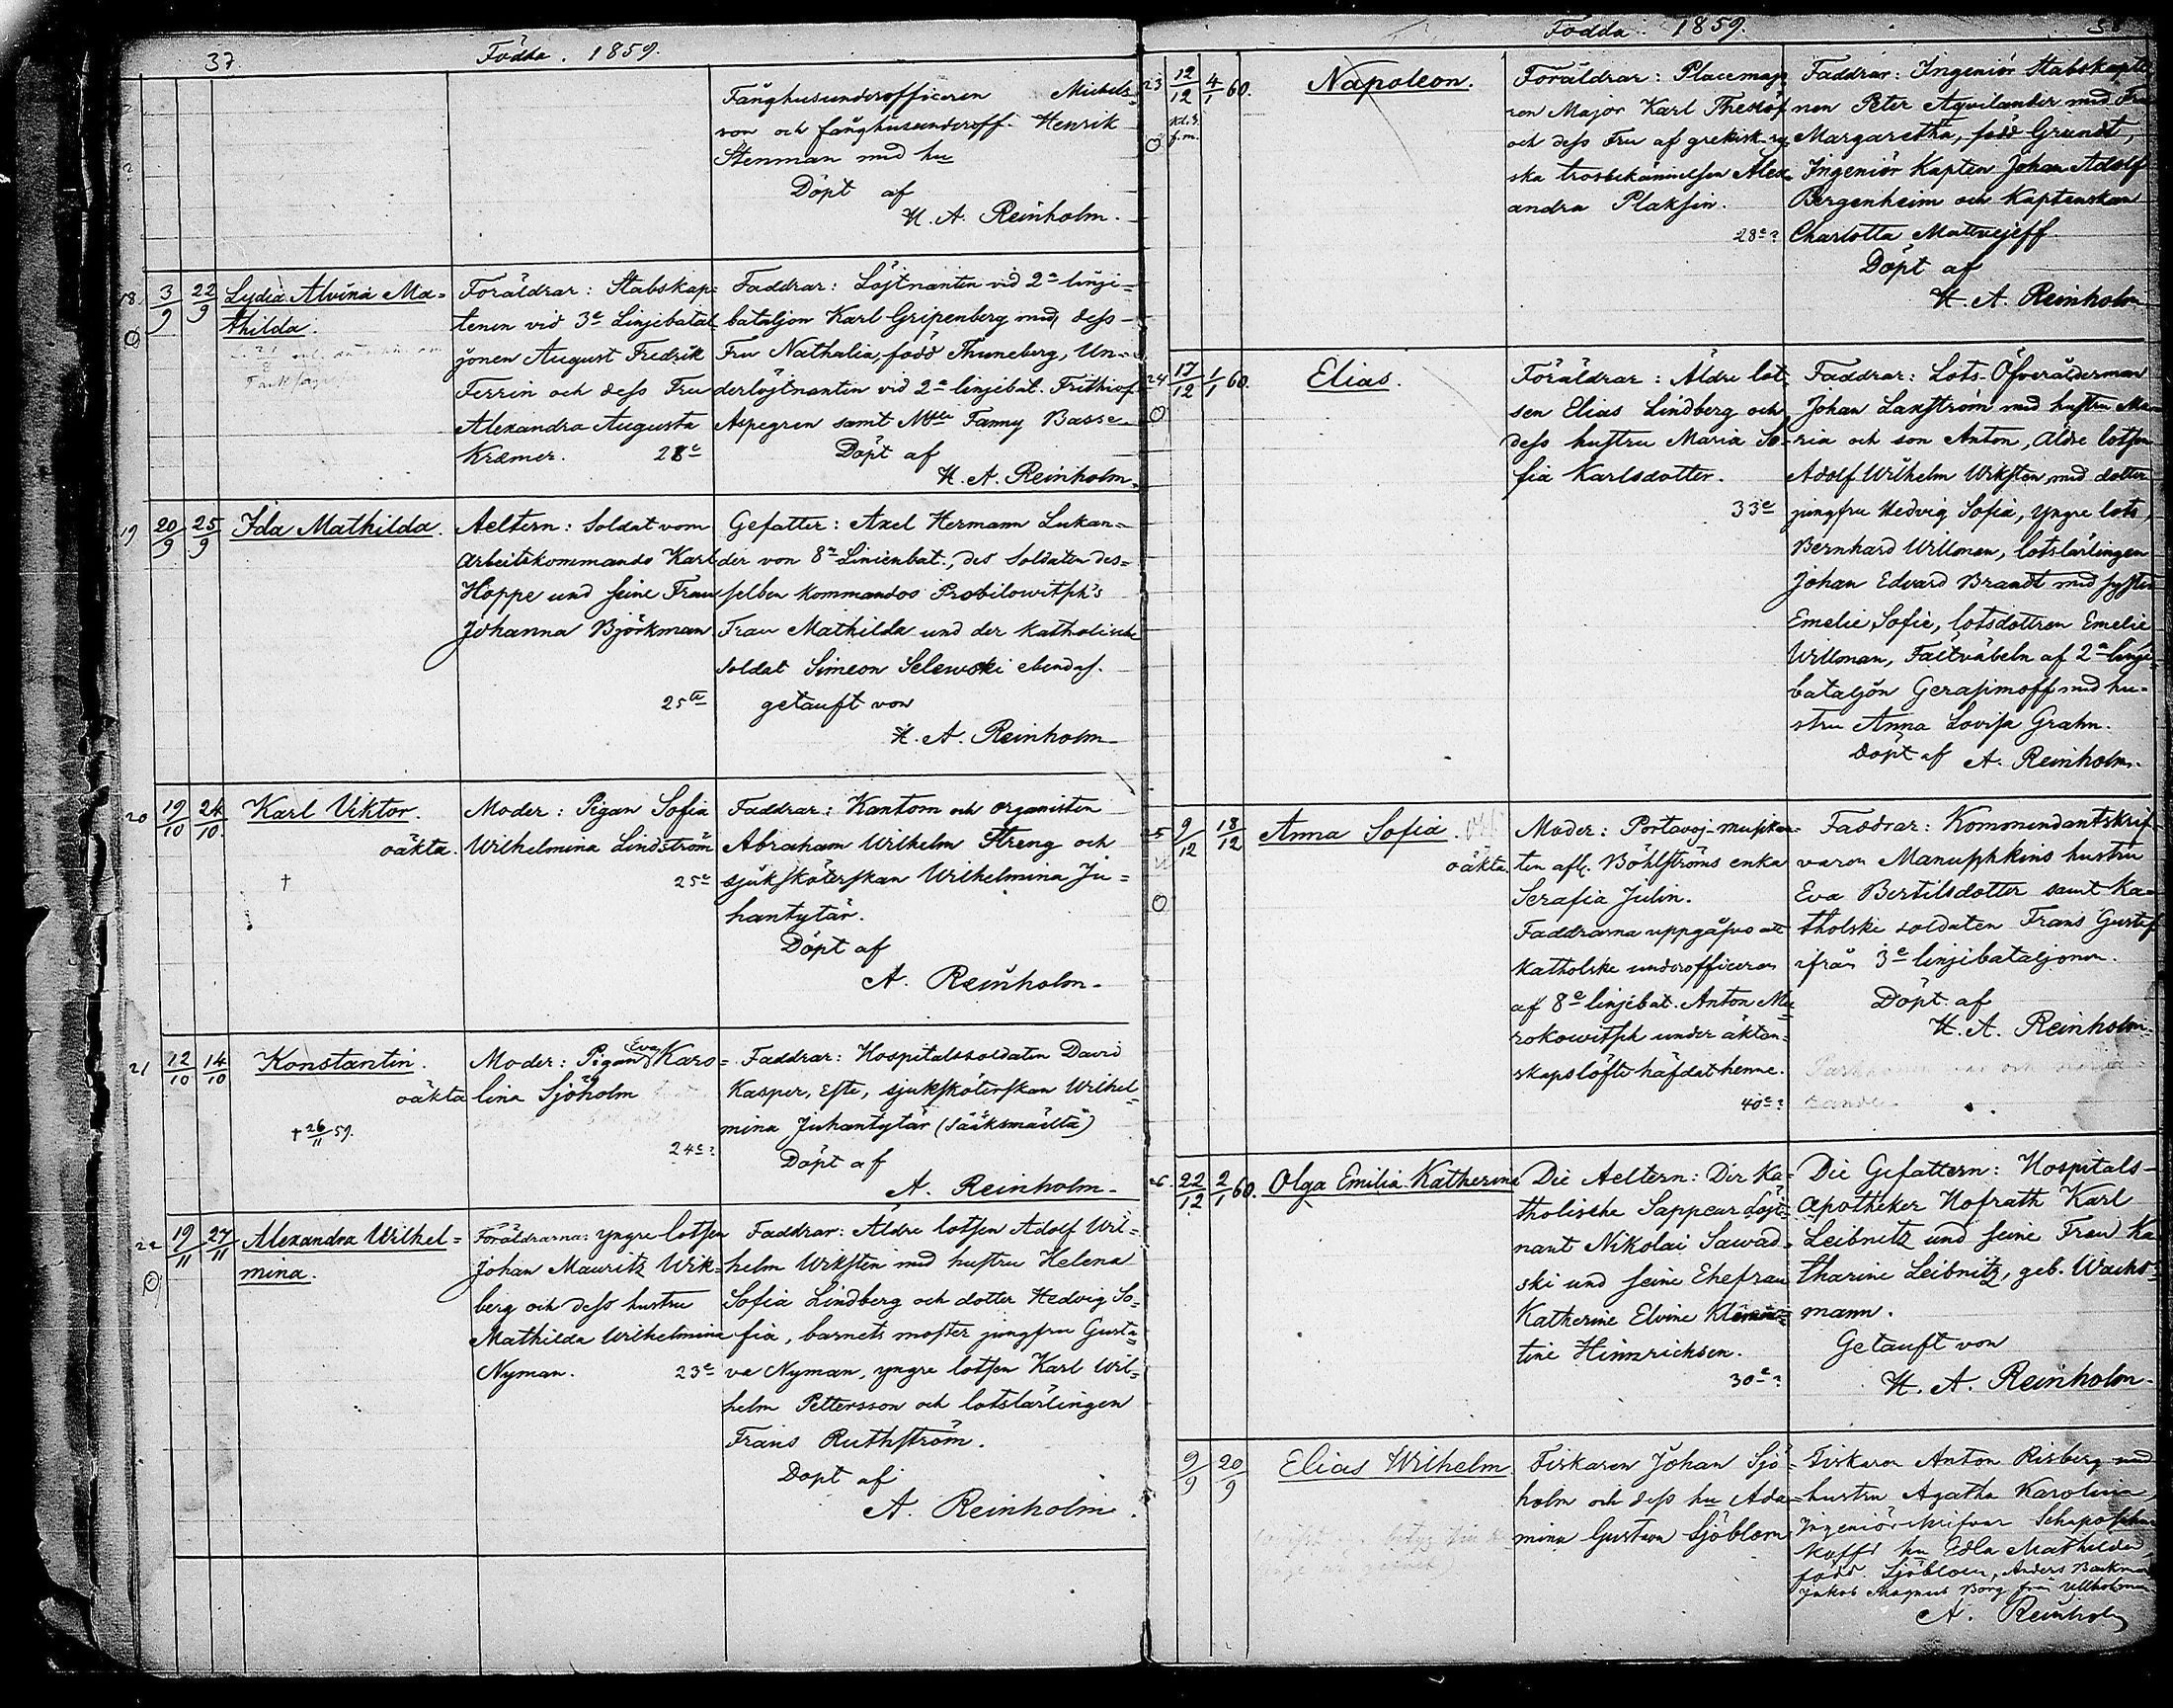 37.
Födda. 1859.
Fånghusunderofficeren Michels-
son och fånghusunderoff. Henrik
Stenman med hu
Döpt af
H. A. Reinholm.
18.
3/9
22/9
Lydia Alvina Ma-
thilda.
Föräldrar: Stabskap-
tenen vid 3e Linjebatal
jonen August Fredrik
Ferrin och dess Fru
Alexandra Augusta
Kræmer. 28e
Faddrar: Löjtnanten vid 2a linje-
bataljon Karl Gripenberg med dess
Fru Nathalia, född Thuneberg, Un-
derlöjtnanten vid 2a linjebat. Frithiof
Aspegren samt Mlle Fanny Basse
Döpt af
H. A. Reinholm.
19
20/9
25/9
Ida Mathilda.
Aeltern: Soldat vom
Arbeitskommando Karl
Hoppe und seine Frau
Johanna Björkman
25te
Gefatter: Axel Hermann Lukan-
der von 8n Linienbat., des Soldaten des-
selben Kommandos Probilowitsch's
Frau Mathilda und der katholische
Soldat Simeon Selewski ebendas.
getauft von
H. A. Reinholm
20
19/10
24/10.
Karl Viktor.
oäkta.
†
Moder: Pigan Sofia
Wilhelmina Lindström
25e
Faddrar: Kantorn och organisten
Abraham Wilhelm Streng och
sjuksköterskan Wilhelmina Ju-
hantytär.
Döpt af
A. Reinholm.
21
12/10
14/10
Konstantin.
oäkta
† 26/11 59.
Moder: Pigan Eva Karo-
lina Sjöholm
24e?
Faddrar: Hospitalssoldaten David
Kasper, Este, sjuksköterskan Wilhel-
mina Juhantytär (Sääksmäeltä)
Döpt af
A. Reinholm.
22
19/11
27/11
Alexandra Wilhel-
mina.
Föräldrarna: yngre lotsen
Johan Mauritz Wik-
berg och dess hustru
Mathilda Wilhelmina
Nyman. 23e
Faddrar: Äldre lotsen Adolf Wil-
helm Wiksten med hustru Helena
Sofia Lindberg och dotter Hedvig So-
fia, barnets moster jungfru Gusta-
va Nyman, yngre lotsen Karl Wil-
helm Pettersson och lotslärlingen
Frans Ruthström.
Döpt af
A. Reinholm.
Födda. 1859.
38
23
12/12
Kl. 9.
f.m.
4/1 60.
Napoleon.
Föräldrar: Placemajo
ren Major Karl Theslöf
och dess Fru af grekisk-ry
ska trosbekännelsen Alex-
andra Plaksin.
28e?
Faddrar: Ingeniör Stabskapte
nen Peter Aqvilander med Fru
Margaretha, född Grundt,
Ingeniör Kapten Johan Adolf
Bergenheim och Kaptenskan
Charlotta Mattvejeff
Döpt af
H. A. Reinholm
24
17/12
1/1 60.
Elias.
Föräldrar: Äldre lot
sen Elias Lindberg och
dess hustru Maria So-
fia Karlsdotter.
33e
Faddrar: Lots-Öfverålderman
Johan Laxström med hustru Ma-
ria och son Anton, äldre lotsen
Adolf Wilhelm Wiksten med dotter
jungfru Hedvig Sofia, yngre lots,
Bernhard Willman, lotslärlingen
Johan Edvard Brandt med syster
Emelie Sofie, lotsdottren Emelie
Willman, Fältväbeln af 2a linje-
bataljon Gerasimoff med hu-
stru Anna Lovisa Grahn.
Döpt af A. Reinholm.
25
9/12
18/12
Anna Sofia.
oäkta.
Moder: Portavoj-musikan-
ten afl. Böhlströms enka
Serafia Julin.
Faddrarna uppgåfvo att
Katholske underofficeren
af 8e linjebat. Anton Ma
rokowitsh under äkten-
skapslöfte häfdat henne.
40e?
Faddrar: Kommendantskrif-
varen Manuschkins hustru
Eva Bertilsdotter samt Ka-
tholske soldaten Frans Gustef
ifrån 3e linjebataljonen.
Döpt af
H. A. Reinholm.
26.
22/12
2/1 60.
Olga Emilia Katherine
Die Aeltern: Der Ka-
tholische Sappeur Löjt-
nant Nikolai Sawad-
ski und seine Ehefrau
Katherine Elvine Klemen-
tine Hinnrichsen.
30e?
Die Gefattern: Hospitals-
Apotheker Hofrath Karl
Leibnitz und seine Frau Ka
tharine Leibnitz, geb. Wachs-
mann.
Getauft von
H. A. Reinholm.
9/9
20/9
Elias Wilhelm.
Fiskaren Johan Sjö-
holm och dess hu Ada-
mina Gustava Sjöblom
Fiskaren Anton Risberg med
hustru Agatha Karolina,
Ingeniörskrifvar Schaposchni
koffs hu Edla Mathilda,
född Sjöblom, Anders Backman
Jakob Magnus Borg från Villholmen
A. Reinholm